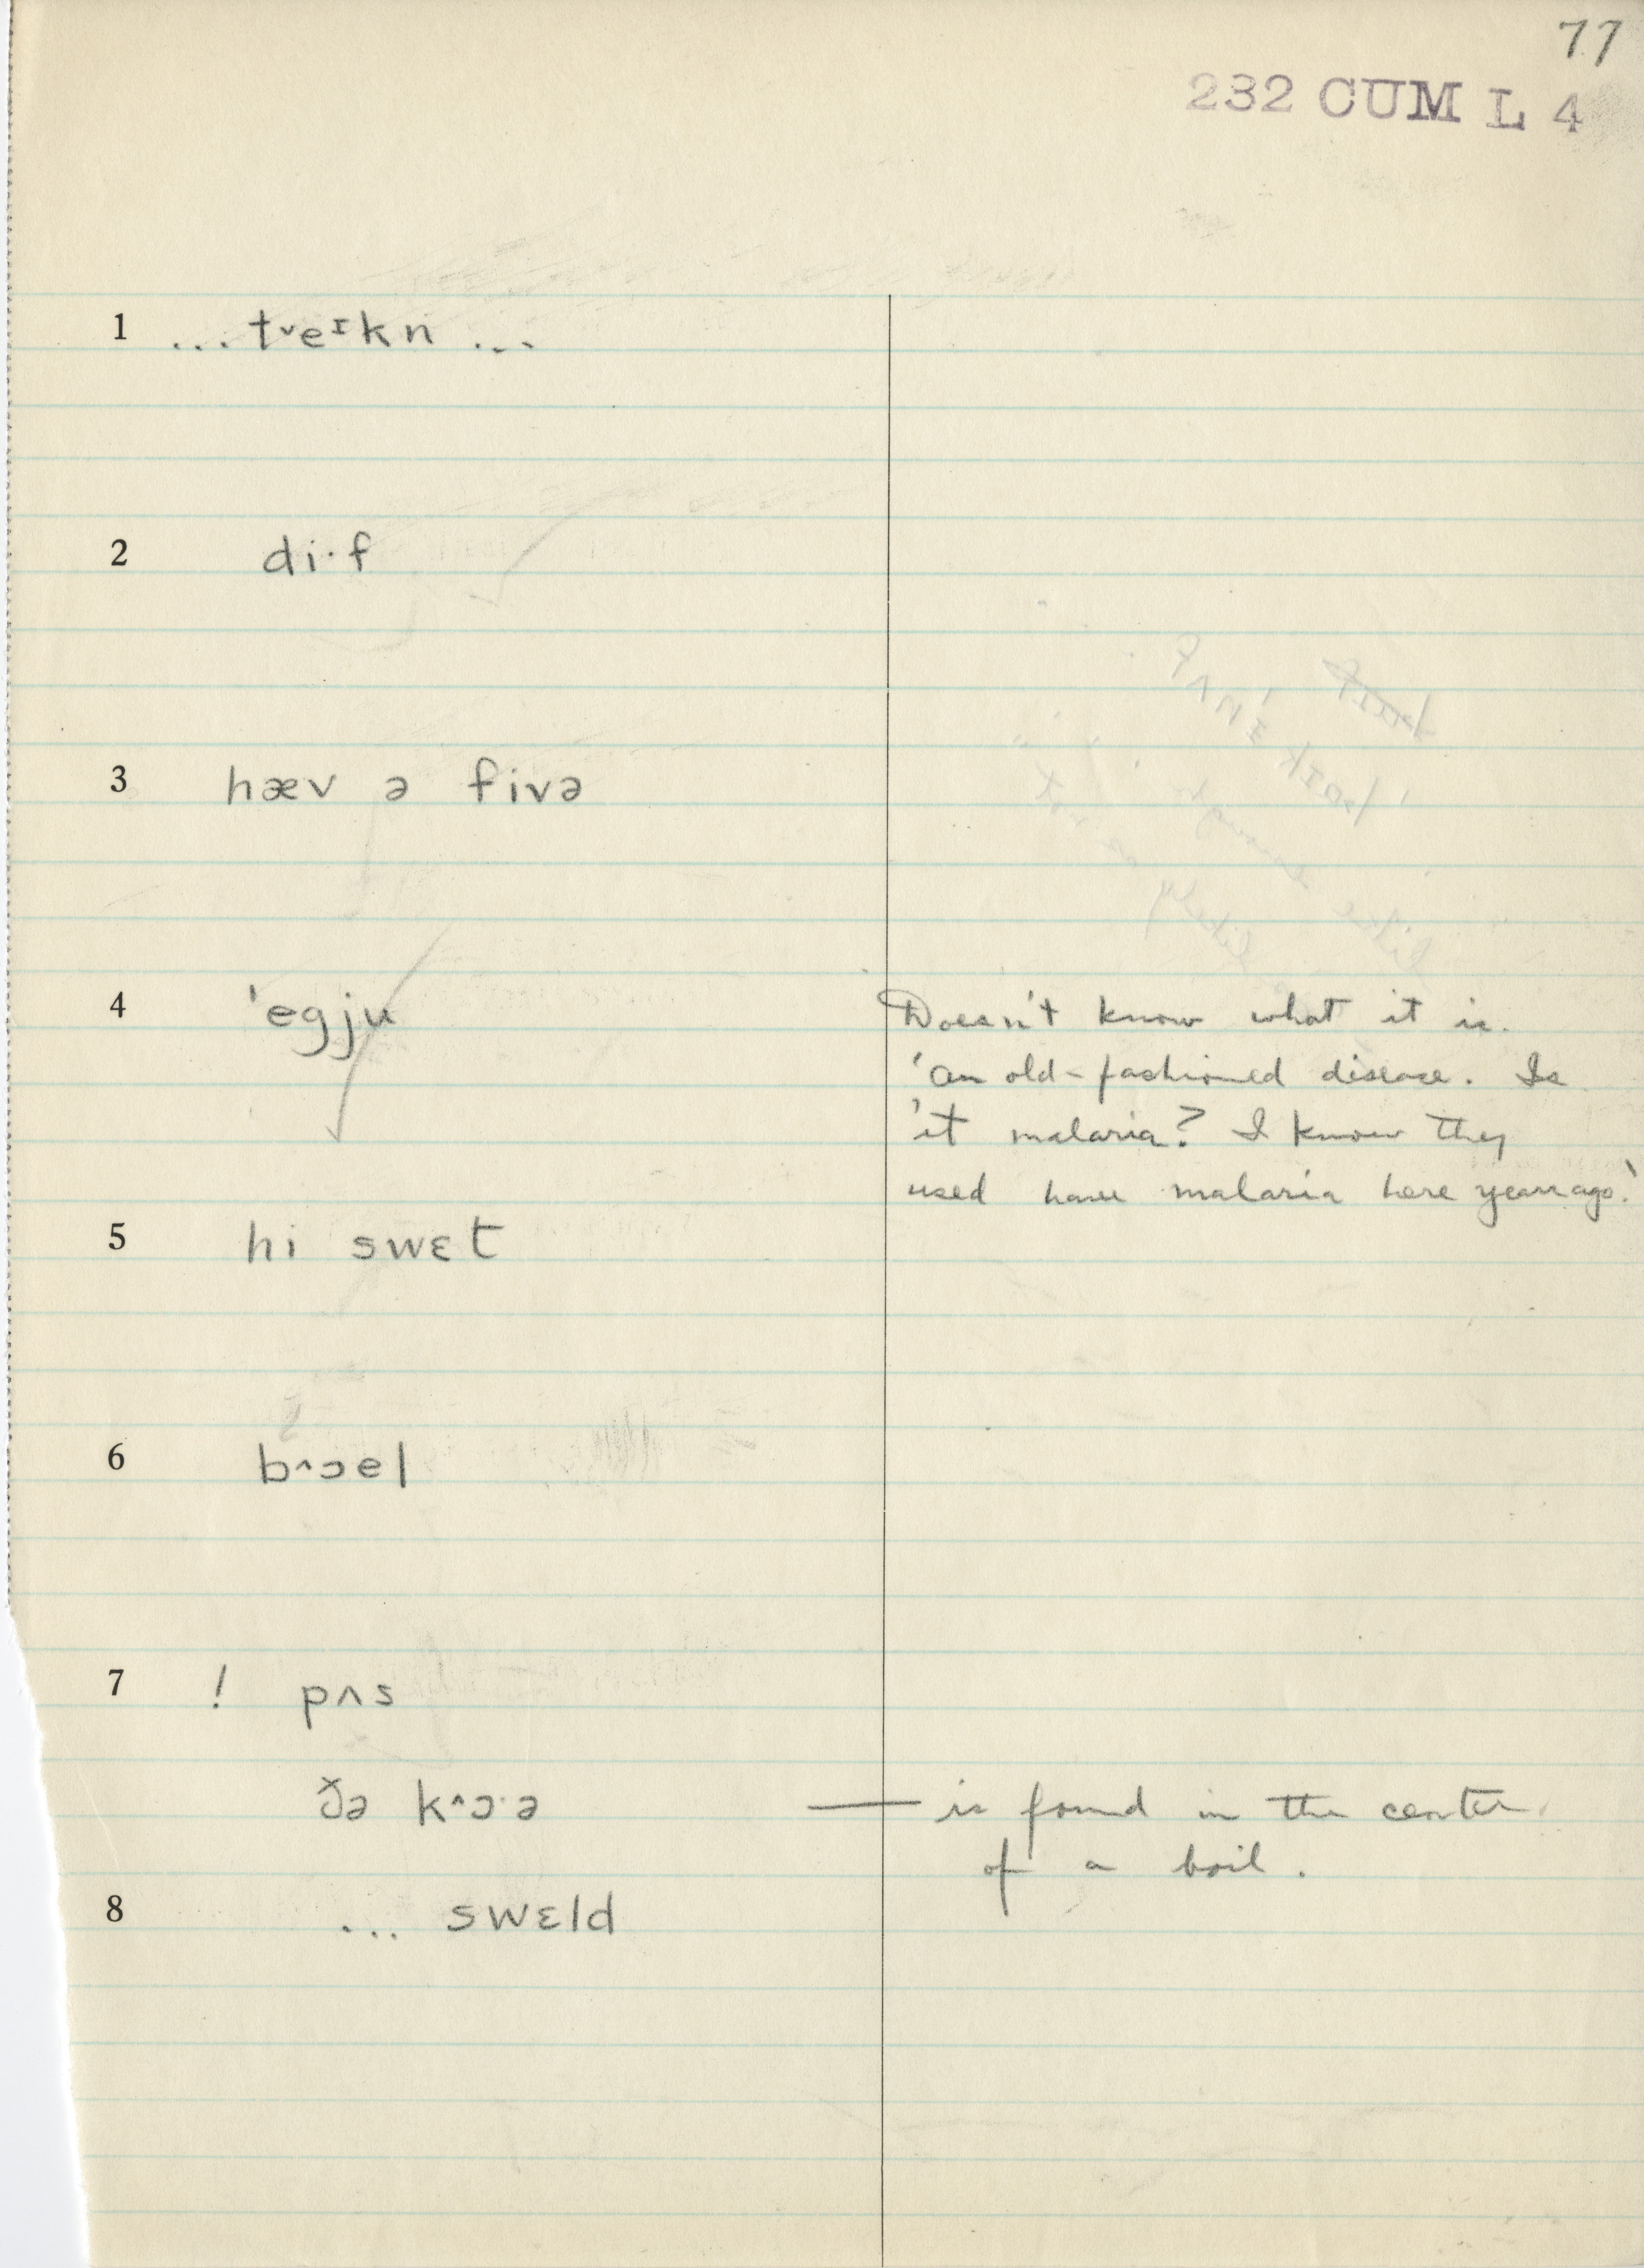 77
232 CUM L 4
1 ... tᵛeɪkn ...
2 di·f
3 hæv ə fivə
4 'egju Doesn't know what it is.
'An old-fashioned disease. Is
'it malaria? I know they
used have malaria here years ago.'
5 hi swɛt
6 b^ɔel
7 ! pʌs
ðə k^ɔ·ə — is found in the center
of a boil.
8 ... swɛld